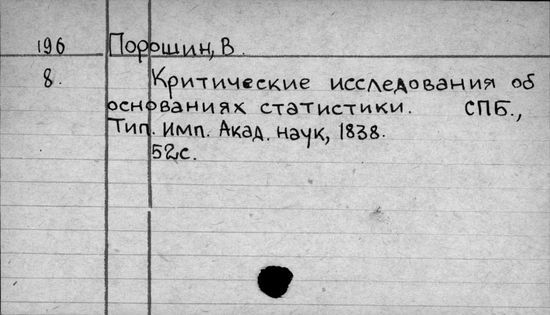 196 Порошин, В.
8. Критические исследования об
основаниях статистики. СПБ.,
Тип. Имп. Акад. наук, 1838.
52с.